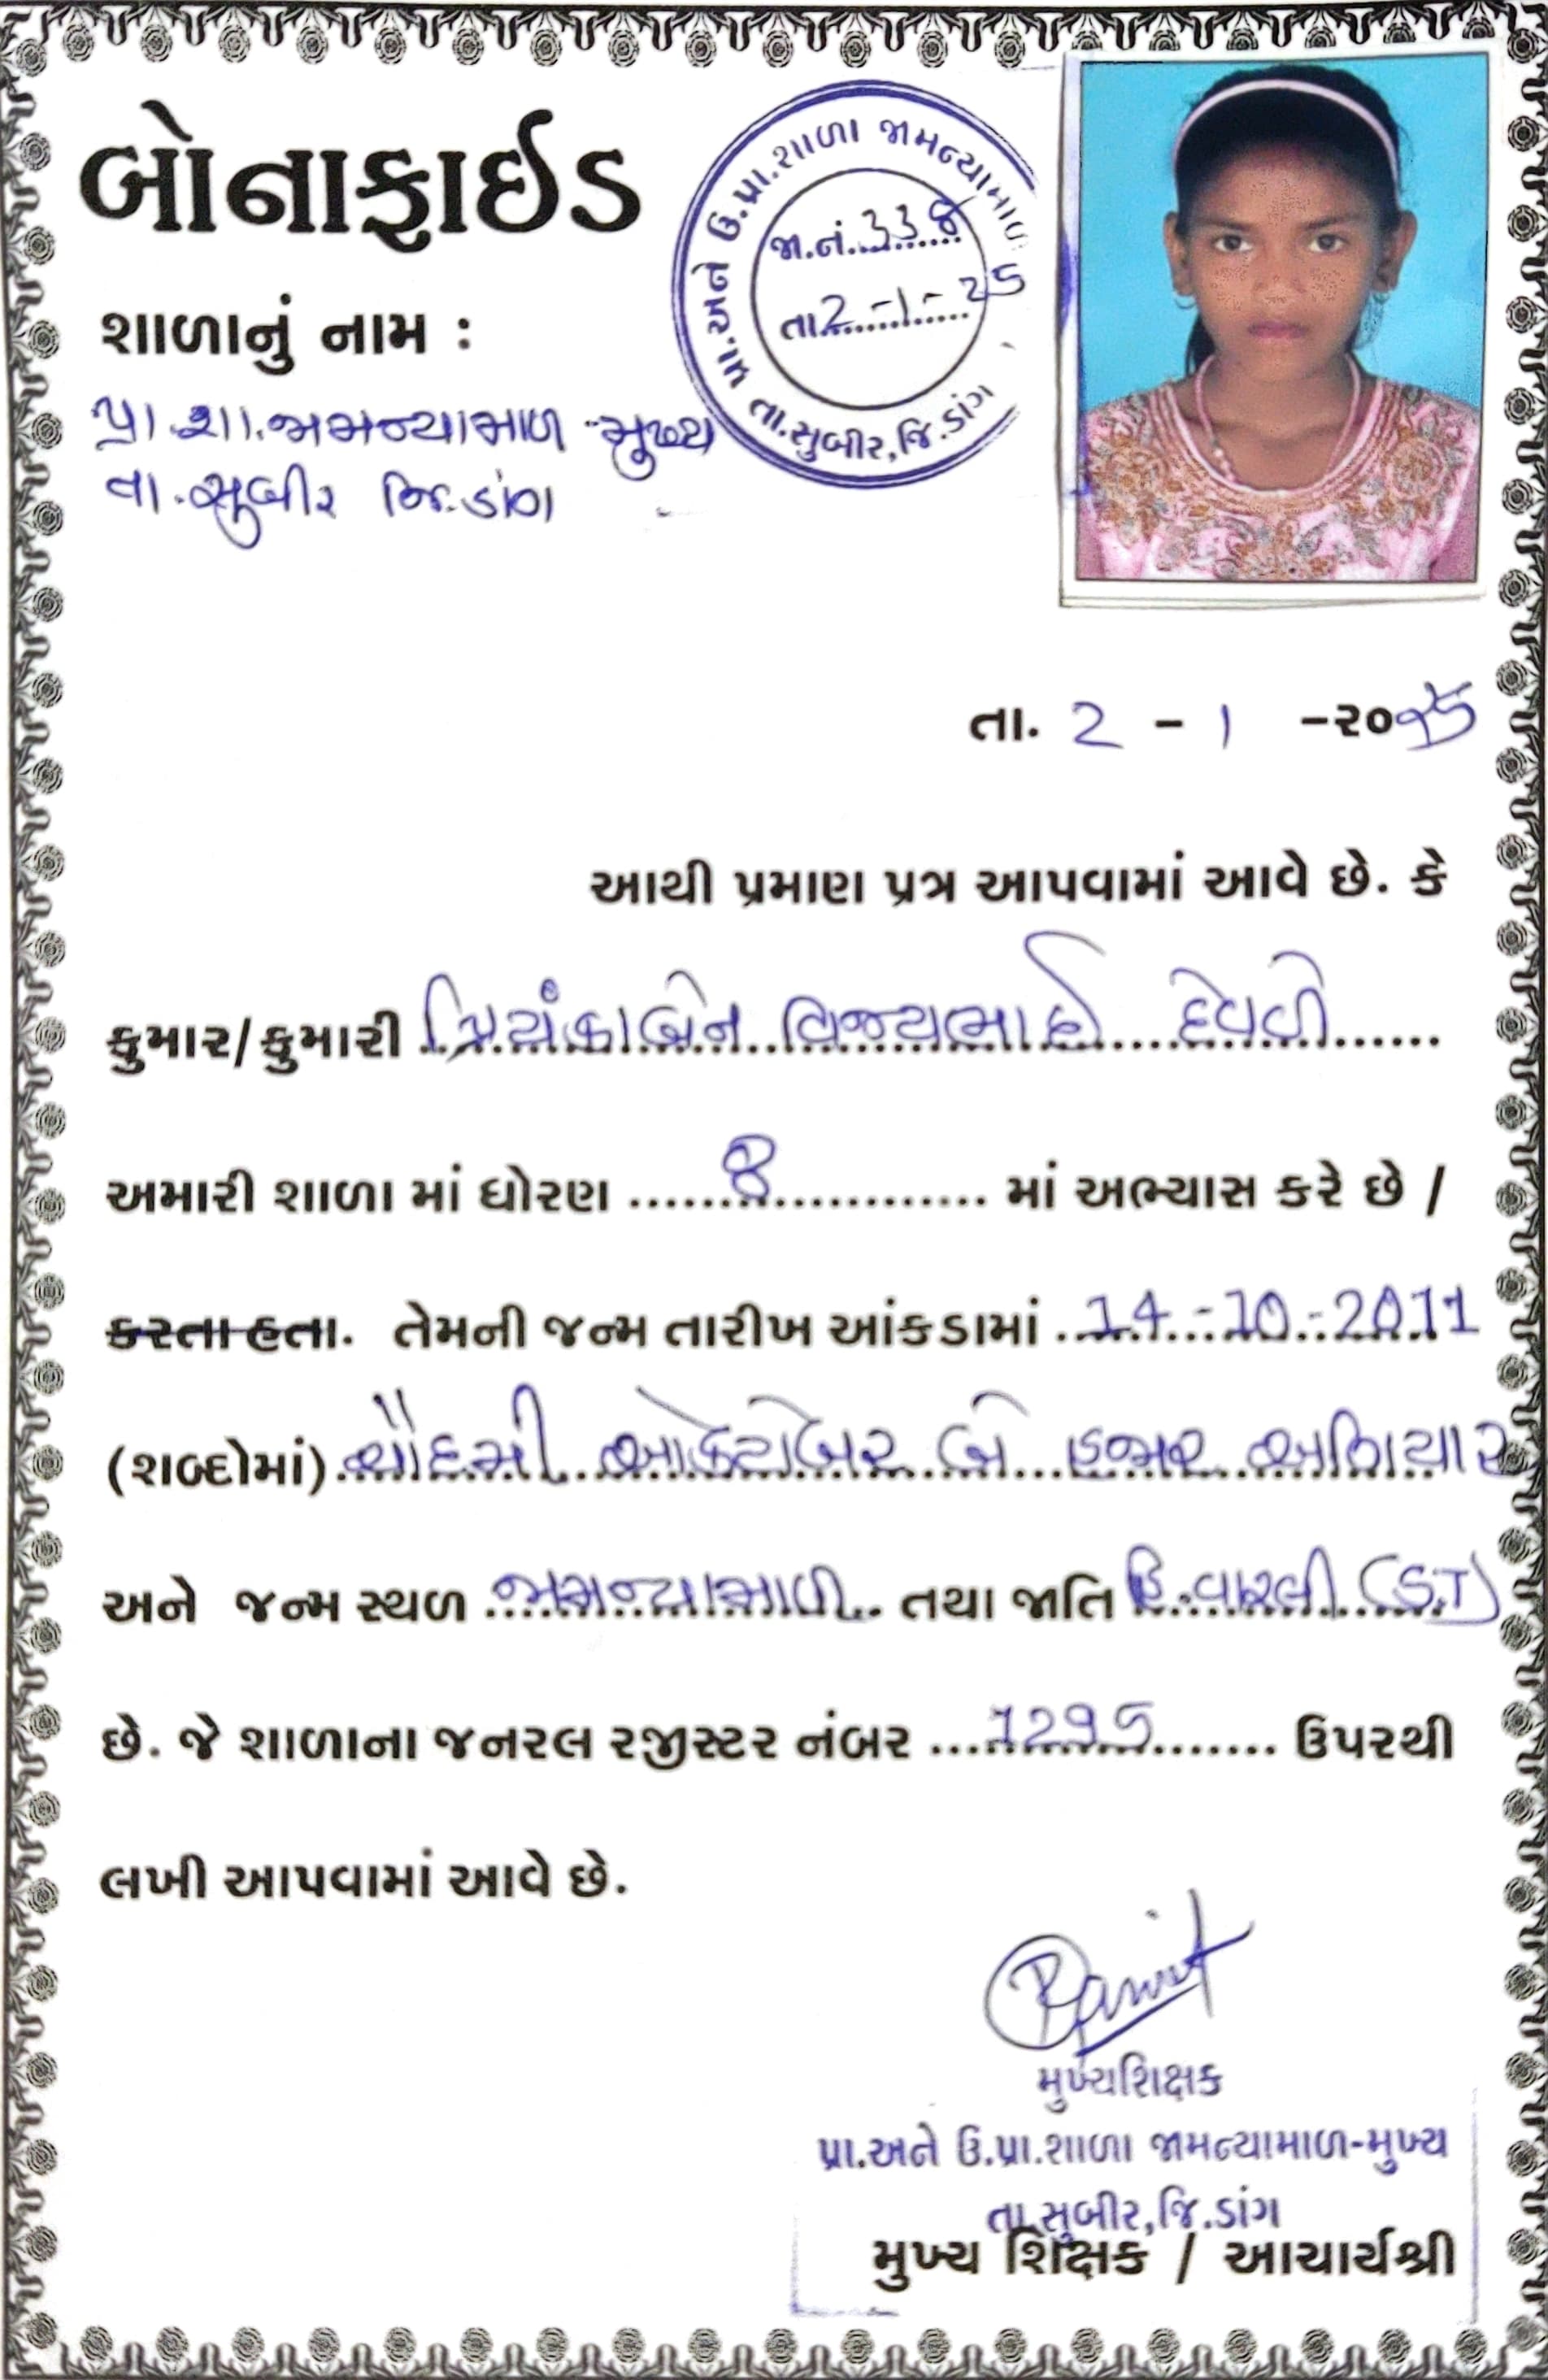 બોનાફાઈડ
પ્રા.અને ઉ.પ્રા.શાળા જામન્યામાળ
જા.નં. 338
તા. 2-1-25
તા.સુબીર,જિ.ડાંગ
શાળાનું નામ :
પ્રા.શા.જામન્યામાળ-મુખ્ય
તા.સુબીર જિ.ડાંગ
તા. 2 - 1 -૨૦૨5
આથી પ્રમાણ પત્ર આપવામાં આવે છે. કે
કુમાર/કુમારી પ્રિયંકાબેન વિજયભાઈ
અમારી શાળા માં ધોરણ ........8........ માં અભ્યાસ કરે છે /
કરતા હતા. તેમની જન્મ તારીખ આંકડામાં 14-10-2011
(શબ્દોમાં) ચૌદમી ઓક્ટોબર બે હજાર અગિયાર
અને જન્મ સ્થળ જામન્યામાળ તથા જાતિ હિ.વારલી (S.T)
છે. જે શાળાના જનરલ રજીસ્ટર નંબર ....1295.... ઉપરથી
લખી આપવામાં આવે છે.
મુખ્યશિક્ષક
પ્રા.અને ઉ.પ્રા.શાળા જામન્યામાળ-મુખ્ય
તા.સુબીર,જિ.ડાંગ
મુખ્ય શિક્ષક / આચાર્યશ્રી